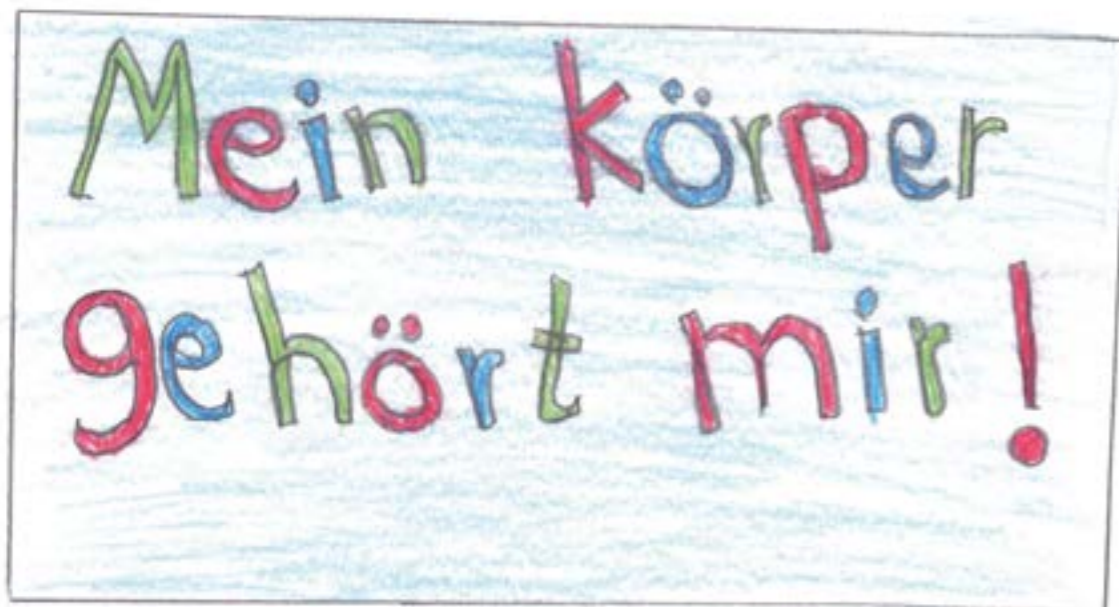 Mein körper
gehört mir!